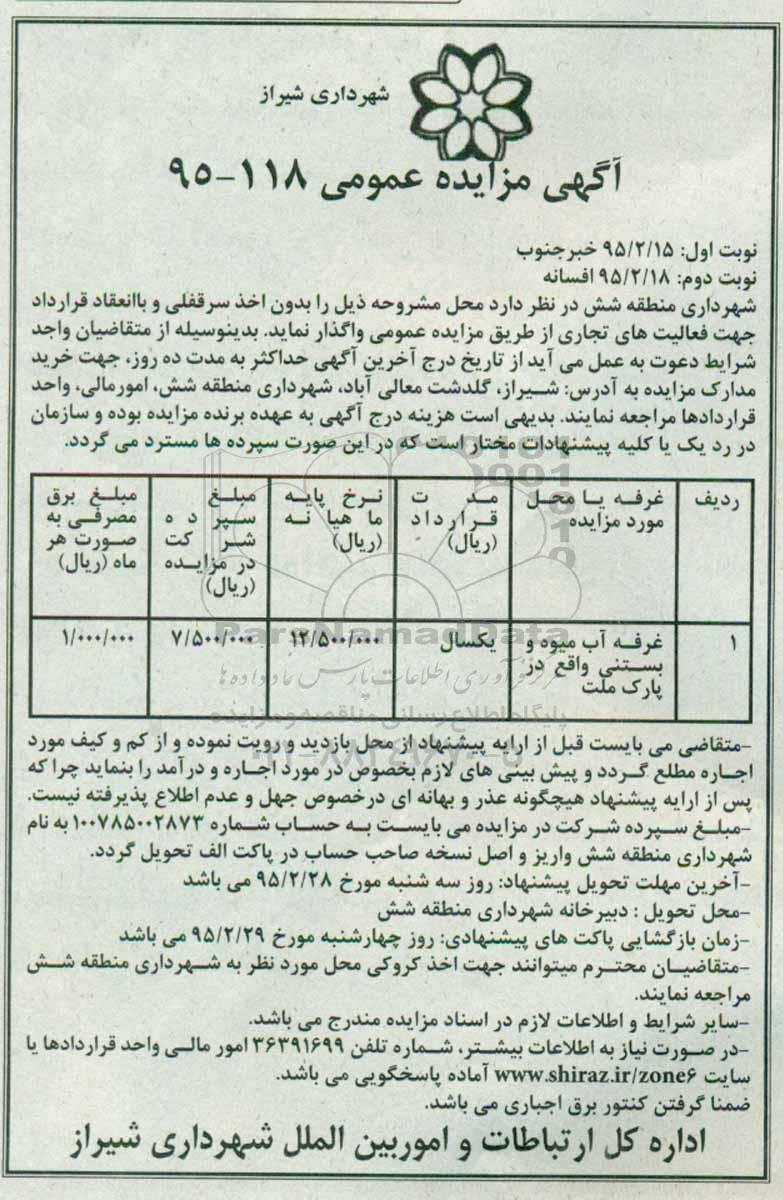 شهرداری شیراز
آگهی مزایده عمومی ۱۱۸-۹۵
نوبت اول: ۹۵/۲/۱۵ خبرجنوب
نوبت دوم: ۹۵/۲/۱۸ افسانه
شهرداری منطقه شش در نظر دارد محل مشروحه ذیل را بدون اخذ سرقفلی و باانعقاد قرارداد
جهت فعالیت های تجاری از طریق مزایده عمومی واگذار نماید. بدینوسیله از متقاضیان واجد
شرایط دعوت به عمل می آید از تاریخ درج آخرین آگهی حداکثر به مدت ده روز، جهت خرید
مدارک مزایده به آدرس: شیراز، گلدشت معالی آباد، شهرداری منطقه شش، امورمالی، واحد
قراردادها مراجعه نمایند. بدیهی است هزینه درج آگهی به عهده برنده مزایده بوده و سازمان
در رد یک یا کلیه پیشنهادات مختار است که در این صورت سپرده ها مسترد می گردد.
ردیف
غرفه یا محل
مورد مزایده
مدت
قرارداد
(ریال)
نرخ پایه
ماهیانه
(ریال)
مبلغ
سپرده
شرکت
در مزایده
(ریال)
مبلغ برق
مصرفی به
صورت هر
ماه (ریال)
۱
غرفه آب میوه و
بستنی واقع در
پارک ملت
یکسال
۱۲/۵۰۰/۰۰۰
۷/۵۰۰/۰۰۰
۱/۰۰۰/۰۰۰
ParsNamadData
مرکز فرآوری اطلاعات پارس نماد داده ها
پایگاه اطلاع رسانی مناقصه و مزایده
-متقاضی می بایست قبل از ارایه پیشنهاد از محل بازدید و رویت نموده و از کم و کیف مورد
اجاره مطلع گردد و پیش بینی های لازم بخصوص در مورد اجاره و درآمد را بنماید چرا که
پس از ارایه پیشنهاد هیچگونه عذر و بهانه ای درخصوص جهل و عدم اطلاع پذیرفته نیست.
-مبلغ سپرده شرکت در مزایده می بایست به حساب شماره ۱۰۰۷۸۵۰۰۲۸۷۳ به نام
شهرداری منطقه شش واریز و اصل نسخه صاحب حساب در پاکت الف تحویل گردد.
-آخرین مهلت تحویل پیشنهاد: روز سه شنبه مورخ ۹۵/۲/۲۸ می باشد
-محل تحویل : دبیرخانه شهرداری منطقه شش
-زمان بازگشایی پاکت های پیشنهادی: روز چهارشنبه مورخ ۹۵/۲/۲۹ می باشد
-متقاضیان محترم میتوانند جهت اخذ کروکی محل مورد نظر به شهرداری منطقه شش
مراجعه نمایند.
-سایر شرایط و اطلاعات لازم در اسناد مزایده مندرج می باشد.
-در صورت نیاز به اطلاعات بیشتر، شماره تلفن ۳۶۳۹۱۶۹۹ امور مالی واحد قراردادها یا
سایت www.shiraz.ir/zone۶ آماده پاسخگویی می باشد.
ضمنا گرفتن کنتور برق اجباری می باشد.
اداره کل ارتباطات و اموربین الملل شهرداری شیراز